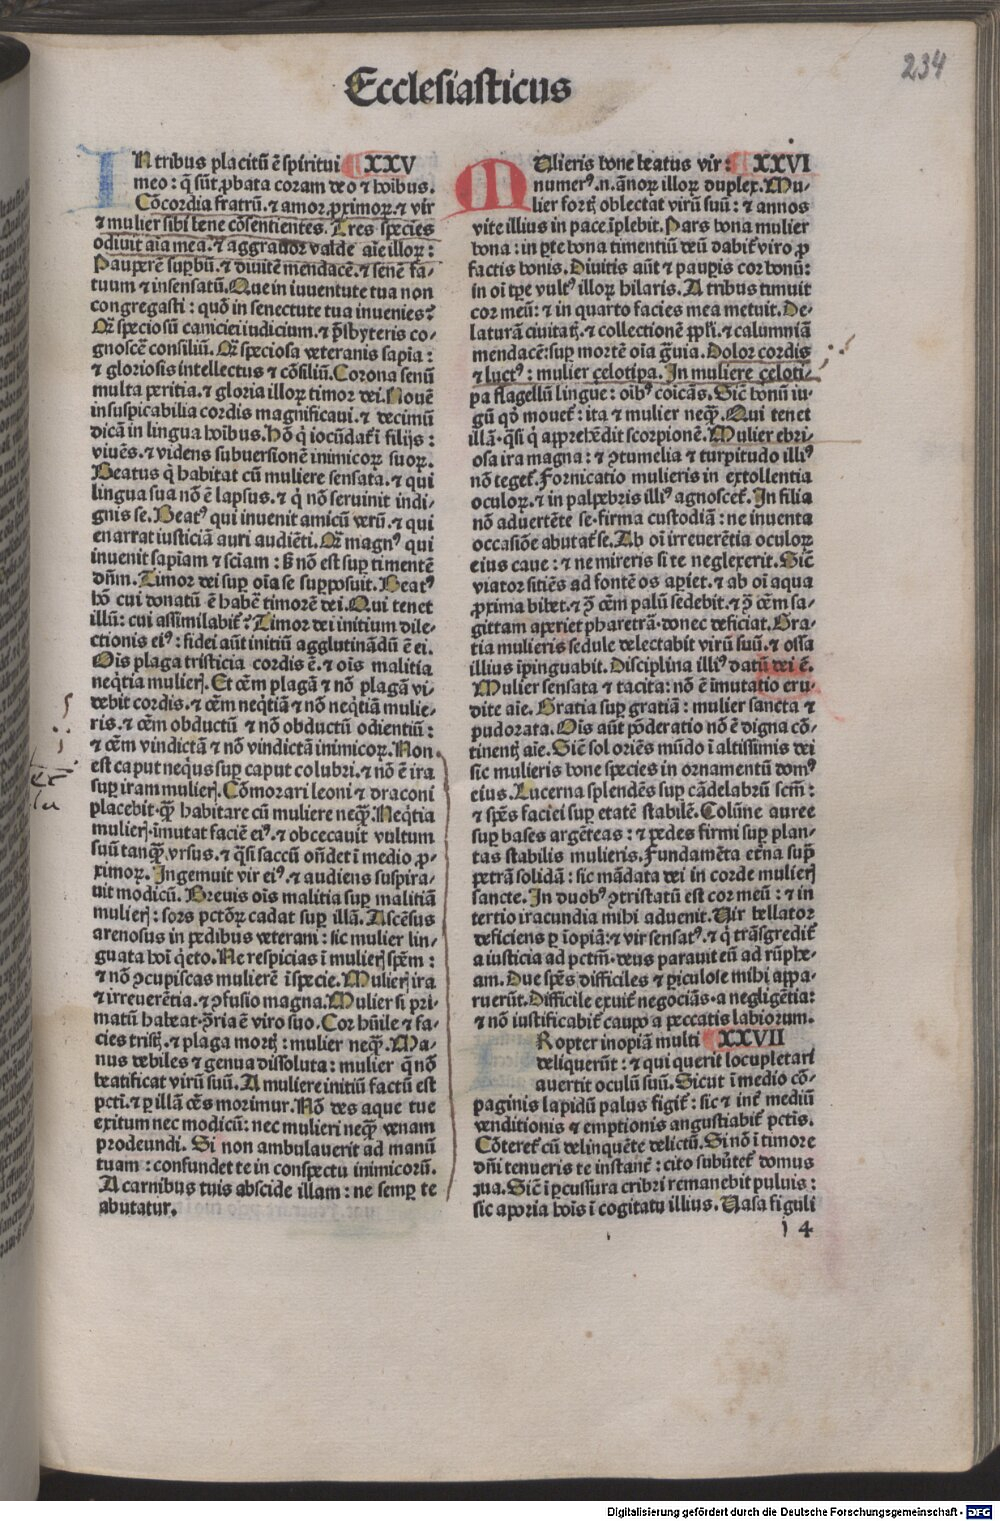 234
Ecclesiasticus
IN tribus placitū ē spiritui XXV
meo : q̄ sūt ꝓbata coram deo ⁊ hoibus.
Cōcordia fratrū.⁊ amor ꝓximoꝝ.⁊ vir
⁊ mulier sibi bene cōsentientes. Tres species
odiuit aīa mea.⁊ aggrauor valde aīe illoꝝ :
Pauperē suꝑbū.⁊ diuitē mendacē.⁊ senē fa⸗
tuum ⁊ insensatū. Que in iuuentute tua non
congregasti : quō in senectute tua inuenies?
Qꝫ speciosū caniciei iudicium.⁊ p̄sbyteris co⸗
gnoscē consiliū. Qꝫ speciosa veteranis sapīa :
⁊ gloriosis intellectus ⁊ cōsiliū. Corona senū
multa peritia.⁊ gloria illoꝝ timor dei. Nouē
insuspicabilia cordis magnificaui.⁊ decimū
dicā in lingua hoibus. Hō q̄ iocūdat᷑ i filijs :
viuēs.⁊ videns subuersionē inimicoꝝ suoꝝ.
Beatus q̄ habitat cū muliere sensata.⁊ qui
lingua sua nō ē lapsus.⁊ q̄ nō seruiuit indi⸗
gnis se. Beatꝰ qui inuenit amicū verū.⁊ qui
enarrat iusticiā auri audiēti. Qꝫ magnꝰ qui
inuenit sapīam ⁊ sciam : ẞ nō est suꝑ timentē
dn̄m. Timor dei suꝑ oīa se suꝑposuit. Beatꝰ
hō cui donatū ē habē timorē dei. Qui tenet
illū : cui assimilabit᷑? Timor dei initium dile⸗
ctionis eiꝰ : fidei aūt initiū agglutinādū ē ei.
Oīs plaga tristicia cordis ē.⁊ oīs malitia
neq̄tia mulierꝭ. Et oēm plagā ⁊ nō plagā vi⸗
debit cordis.⁊ oēm neq̄tiā ⁊ nō neq̄tiā mulie⸗
ris.⁊ oēm obductū ⁊ nō obductū odientiū :
⁊ oēm vindictā ⁊ nō vindictā inimicoꝝ. Non
est caput neq̄us suꝑ caput colubri.⁊ nō ē ira
suꝑ iram mulierꝭ. Cōmorari leoni ⁊ draconi
placebit.q̄ꝫ habitare cū muliere neq̄ꝫ. Neq̄tia
mulierꝭ.imutat faciē eiꝰ.⁊ obcecauit vultum
suū tanq̄ꝫ vrsus.⁊ q̄si saccū oñdet ī medio ꝓ⸗
ximoꝝ. Ingemuit vir eiꝰ.⁊ audiens suspira⸗
uit modicū. Breuis oīs malitia suꝑ malitiā
mulierꝭ : sors pctōꝝ cadat suꝑ illā. Ascēsus
arenosus in pedibus veterani : sic mulier lin⸗
guata hoī q̄eto. Ne respicias ī mulierꝭ spēm :
⁊ nō ↄcupiscas mulierē ī specie. Mulierꝭ ira
⁊ irreuerētia.⁊ ↄfusio magna. Mulier si pri⸗
matū habeat.ↄ̄ria ē viro suo. Cor hūile ⁊ fa⸗
cies tristꝭ.⁊ plaga mortꝭ : mulier neq̄ꝫ. Ma⸗
nus debiles ⁊ genua dissoluta : mulier q̄ nō
beatificat virū suū. A muliere initiū factū est
pcti.⁊ ꝑ illā oēs morimur. Nō des aque tue
exitum nec modicū : nec mulieri neq̄ꝫ venam
prodeundi. Si non ambulauerit ad manū
tuam : confundet te in conspectu inimicorū.
A carnibus tuis abscide illam : ne semꝑ te
abutatur.
MUlieris bone beatus vir : XXVI
numerꝰ.n.ānoꝝ illoꝝ duplex. Mu⸗
lier fortꝭ oblectat virū suū : ⁊ annos
vite illius in pace īplebit. Pars bona mulier
bona : in ꝑte bona timentiū deū dabit᷑ viro ꝓ
factis bonis. Diuitis aūt ⁊ pauꝑis cor bonū :
in oī tꝑe vultꝰ illoꝝ hilaris. A tribus timuit
cor meū : ⁊ in quarto facies mea metuit. De⸗
laturā ciuitatꝭ.⁊ collectionē ppl̄i.⁊ calumniā
mendacē : suꝑ mortē oīa g̃uia. Dolor cordis
⁊ luctꝰ : mulier çelotipa. In muliere çeloti⸗
pa flagellū lingue : oībꝰ coīcās. Sic̄ bonū iu⸗
gū qđ mouet᷑ : ita ⁊ mulier neq̄ꝫ. Qui tenet
illā.q̄si q̄ apprehēdit scorpionē. Mulier ebri⸗
osa ira magna : ⁊ ↄtumelia ⁊ turpitudo illiꝰ
nō teget᷑. Fornicatio mulieris in extollentia
oculoꝝ.⁊ in palpebris illiꝰ agnoscet᷑. In filia
nō aduertēte se.firma custodiā : ne inuenta
occasiōe abutat᷑ se. Ab oī irreuerētia oculoꝝ
eius caue : ⁊ ne mireris si te neglexerit. Sic̄
viator sitiēs ad fontē os aꝑiet.⁊ ab oī aqua
ꝓxima bibet.⁊ ↄ̄ oēm palū sedebit.⁊ ↄ̄ oēm sa⸗
gittam aperiet pharetrā.donec deficiat. Gra⸗
tia mulieris sedule delectabit virū suū.⁊ ossa
illius īpinguabit. Disciplina illiꝰ datū dei ē.
Mulier sensata ⁊ tacita : nō ē īmutatio eru⸗
dite aīe. Gratia suꝑ gratiā : mulier sancta ⁊
pudorata. Oīs aūt pōderatio nō ē digna cō⸗
tinentꝭ aīe. Sic̄ sol oriēs mūdo ī altissimis dei
sic mulieris bone species in ornamentū domꝰ
eius. Lucerna splendēs suꝑ cādelabrū scm̄ :
⁊ spēs faciei suꝑ etatē stabilē. Colūne auree
suꝑ bases argēteas : ⁊ pedes firmi suꝑ plan⸗
tas stabilis mulieris. Fundamēta et̄na sup̄
petrā solidā : sic mādata dei in corde mulierꝭ
sancte. In duobꝰ ↄtristatū est cor meū : ⁊ in
tertio iracundia mihi aduenit. Vir bellator
deficiens ꝑ īopiā : ⁊ vir sensatꝰ.⁊ q̄ trāsgredit᷑
a iusticia ad pctm̄.deus parauit eū ad rūphe⸗
am. Due spēs difficiles ⁊ ꝑiculose mihi appa⸗
ruerūt. Difficile exuit᷑ negociās.a negligētia :
⁊ nō iustificabit᷑ caupo a peccatis labiorum.
Ropter inopiā multi XXVII
deliquerūt : ⁊ qui querit locupletari
auertit oculū suū. Sicut ī medio cō⸗
paginis lapidū palus figit᷑ : sic ⁊ int̄ mediū
venditionis ⁊ emptionis angustiabit᷑ pctis.
Cōteret᷑ cū delinquēte delictū. Si nō ī timore
dn̄i tenueris te instant᷑ : cito subūtet᷑ domus
tua. Sic̄ ī ꝑcussura cribri remanebit puluis :
sic aporia hois ī cogitatu illius. Vasa figuli
j 4
Digitalisierung gefördert durch die Deutsche Forschungsgemeinschaft - DFG